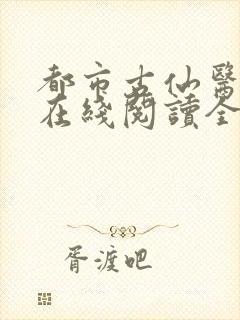 都市古仙醫
在綫閱讀全
胥渡吧